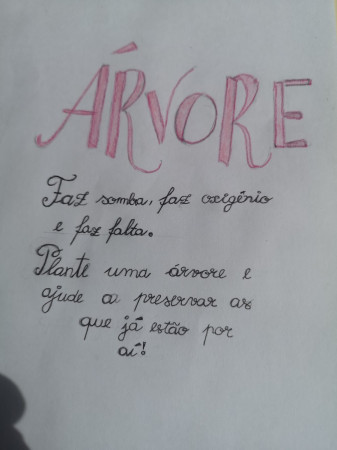 ÁRVORE
Faz somba, faz oxigênio
e faz falta.
Plante uma árvore e
ajude a preservar as
que já estão por
aí!